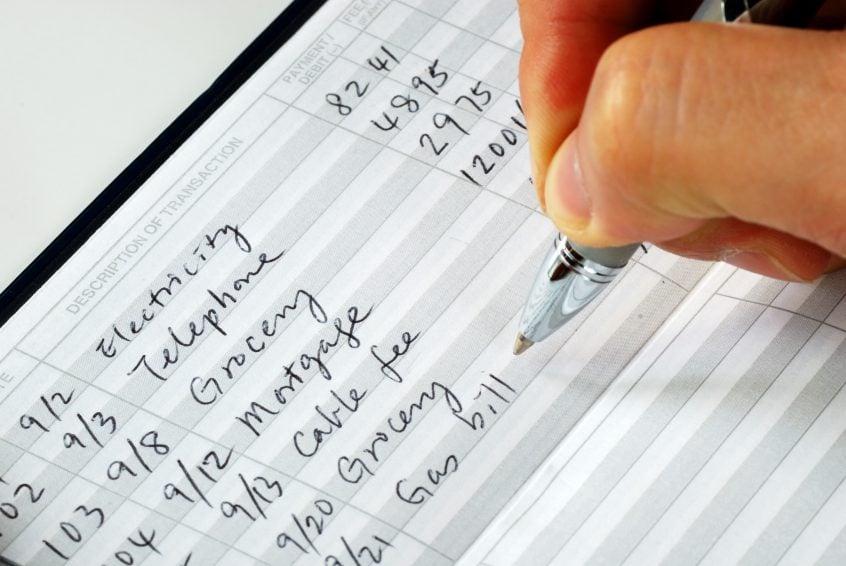 DESCRIPTION OF TRANSACTION PAYMENT / DEBIT (-)
9/2 Electricity 82 41
02 9/3 Telephone 48 95
103 9/8 Grocery 29 75
04 9/12 Mortgage 1200
9/13 Cable fee
9/20 Grocery
9/21 Gas bill